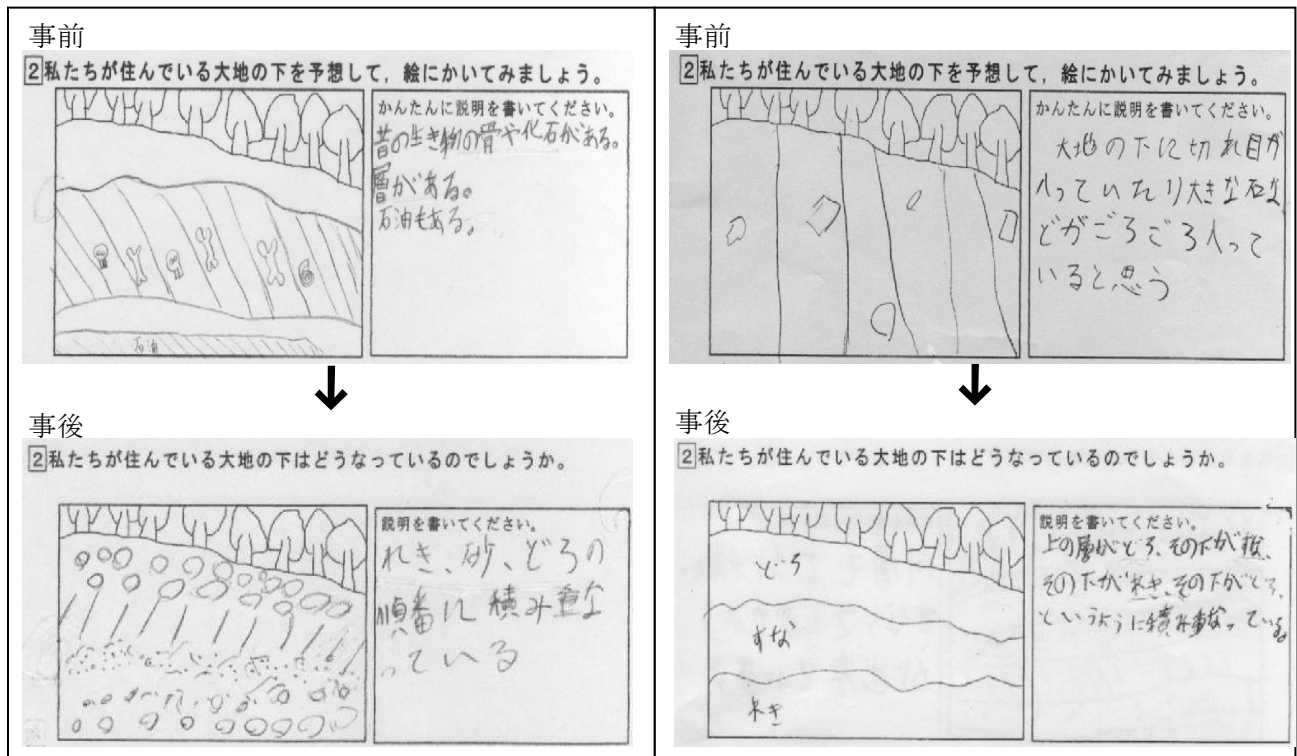 事前
2 私たちが住んでいる大地の下を予想して，絵にかいてみましょう。
かんたんに説明を書いてください。
昔の生き物の骨や化石がある。
層がある。
石油もある。
石油
事後
2 私たちが住んでいる大地の下はどうなっているのでしょうか。
説明を書いてください。
れき、砂、どろの
順番に積み重な
っている
事前
2 私たちが住んでいる大地の下を予想して，絵にかいてみましょう。
かんたんに説明を書いてください。
大地の下に切れ目が
入っていたり大きな石な
どがごろごろ入って
いると思う
事後
2 私たちが住んでいる大地の下はどうなっているのでしょうか。
どろ
すな
れき
説明を書いてください。
上の層がどろ、その下が
その下がれき、その下がどろ、
というように積み重なっている。